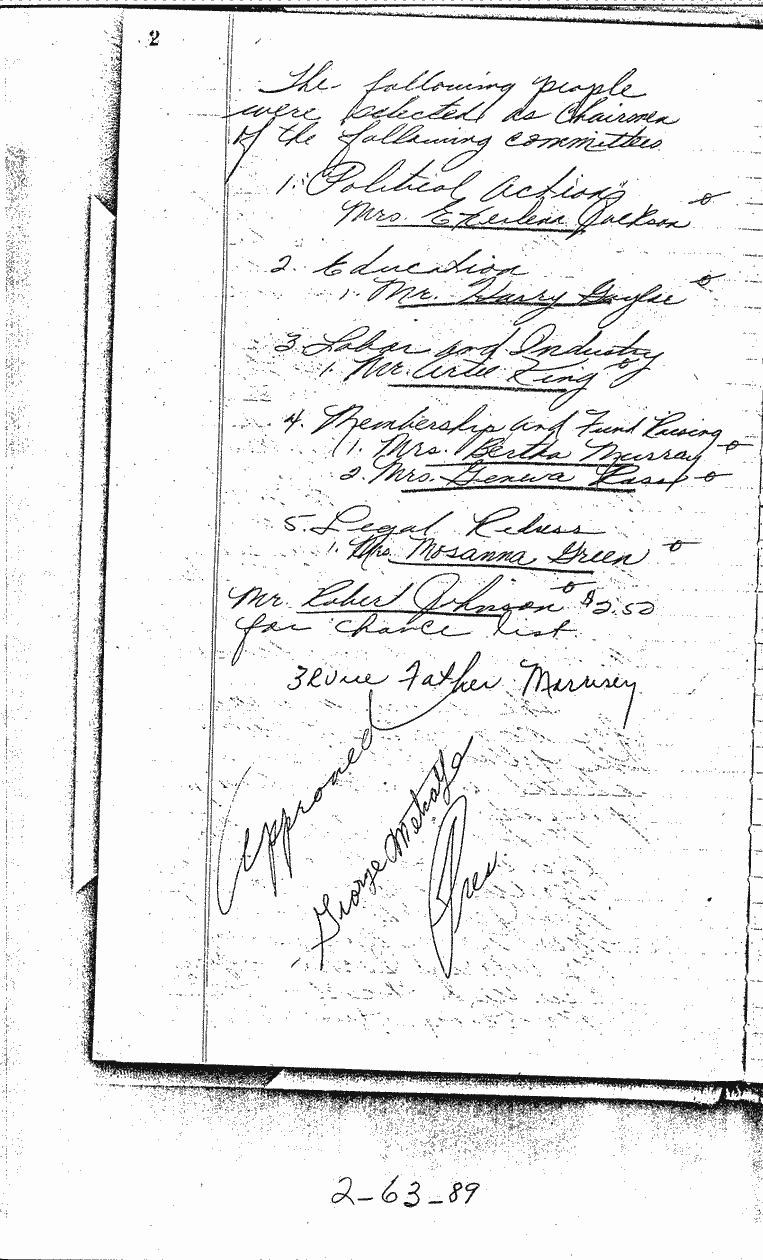 2
The following people
were selected as Chairmen
of the following committees
1. Political Actions
Mrs. Jackson
2. Education
1. Mr. Harry
3. Labor and Industry
1. Mr. Artie King
4. Membership and Fund Raising
1. Mrs. Bertha Murray
2. Mrs. Geneva
5. Legal Redress
1. Mrs. Mosanna Green
Mr. Robert Johnson $2.50
for chance list
Father Morrisey
Approved
George Metcalfe
Pres
2-63-89